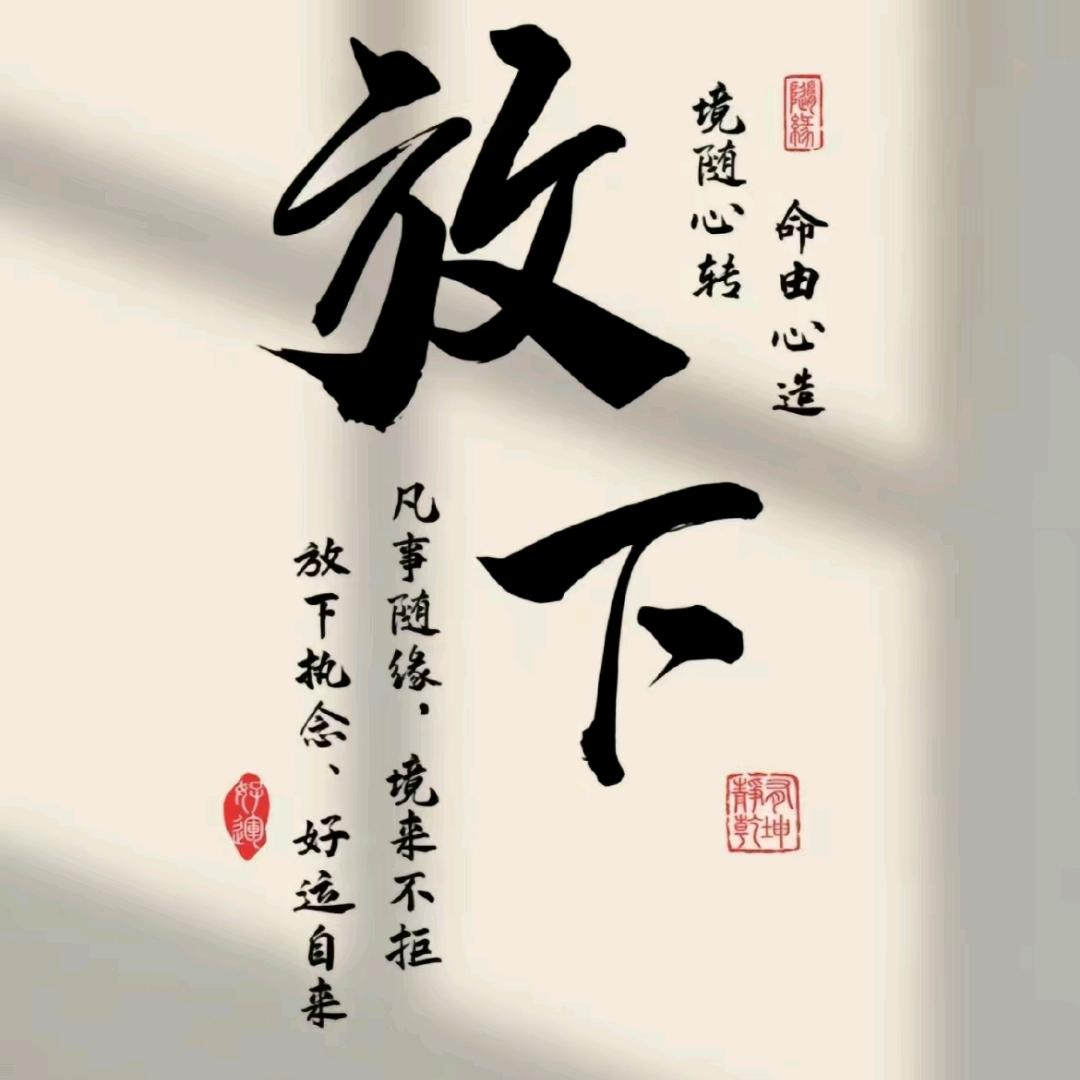 隨緣
命由心造
境随心转
放下
凡事随缘，境来不拒
放下执念、好运自来
好運
靜有乾坤